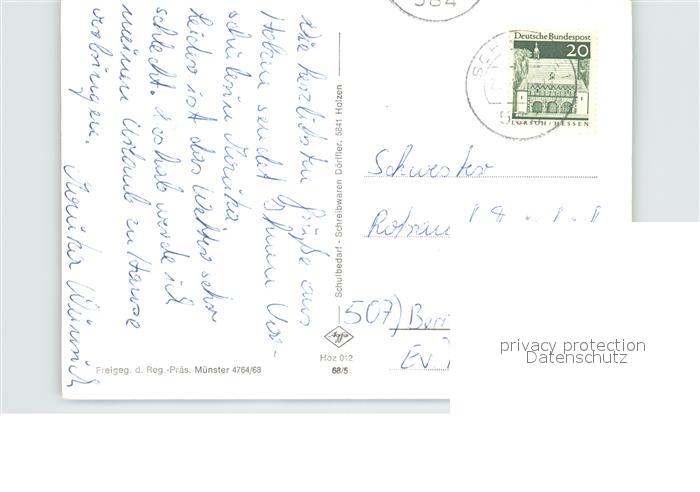 584
Die herzlichsten Grüße aus
Holzen sendet Ihnen Vor-
schülerin Monika
Leider ist das Wetter sehr
schlecht. Deshalb werde ich
meinen Urlaub zu Hause
verbringen. Monika
Schulbedarf - Schreibwaren Dörffler, 5841 Holzen
Deutsche Bundespost
20
LORSCH / HESSEN
SCH
Schwester
(507)
Ev.
Agfa
Hoz 012
68/5
Freigeg. d. Reg.-Präs. Münster 4764/68
privacy protection
Datenschutz